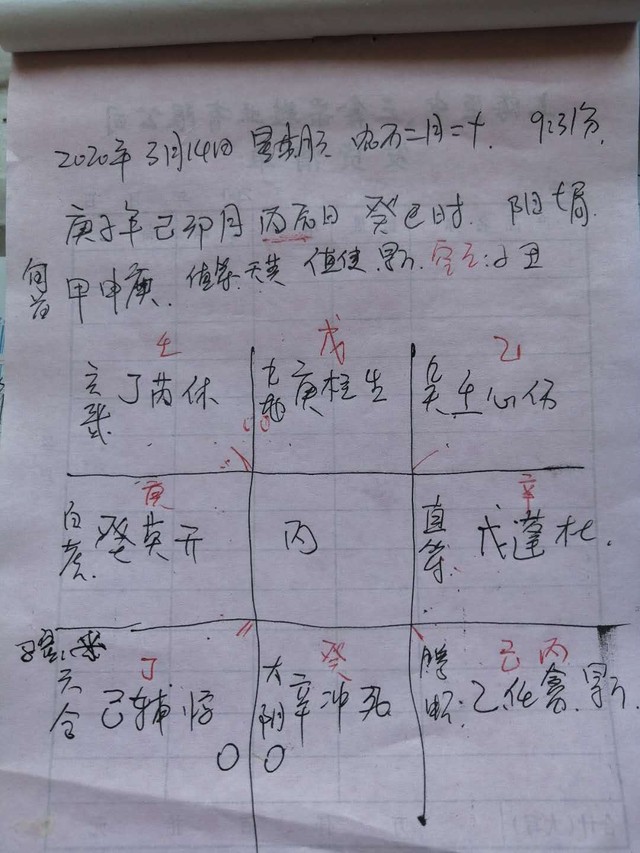 2020年3月14日 星期六 二月二十. 9:31分.
庚子年己卯月 丙辰日 癸巳时. 阳七局.
旬首 甲申庚. 值符: 天英 值使 景门. 空亡: 午
壬 戊 乙
玄武 丁芮休 九地 庚柱生 九天 壬心伤
庚 辛
白虎. 癸英开 丙 直符. 戊蓬杜.
丁 癸 己 丙
六合 己辅惊 太阴 辛冲死 腾蛇. 乙任禽. 景门.
○ ○